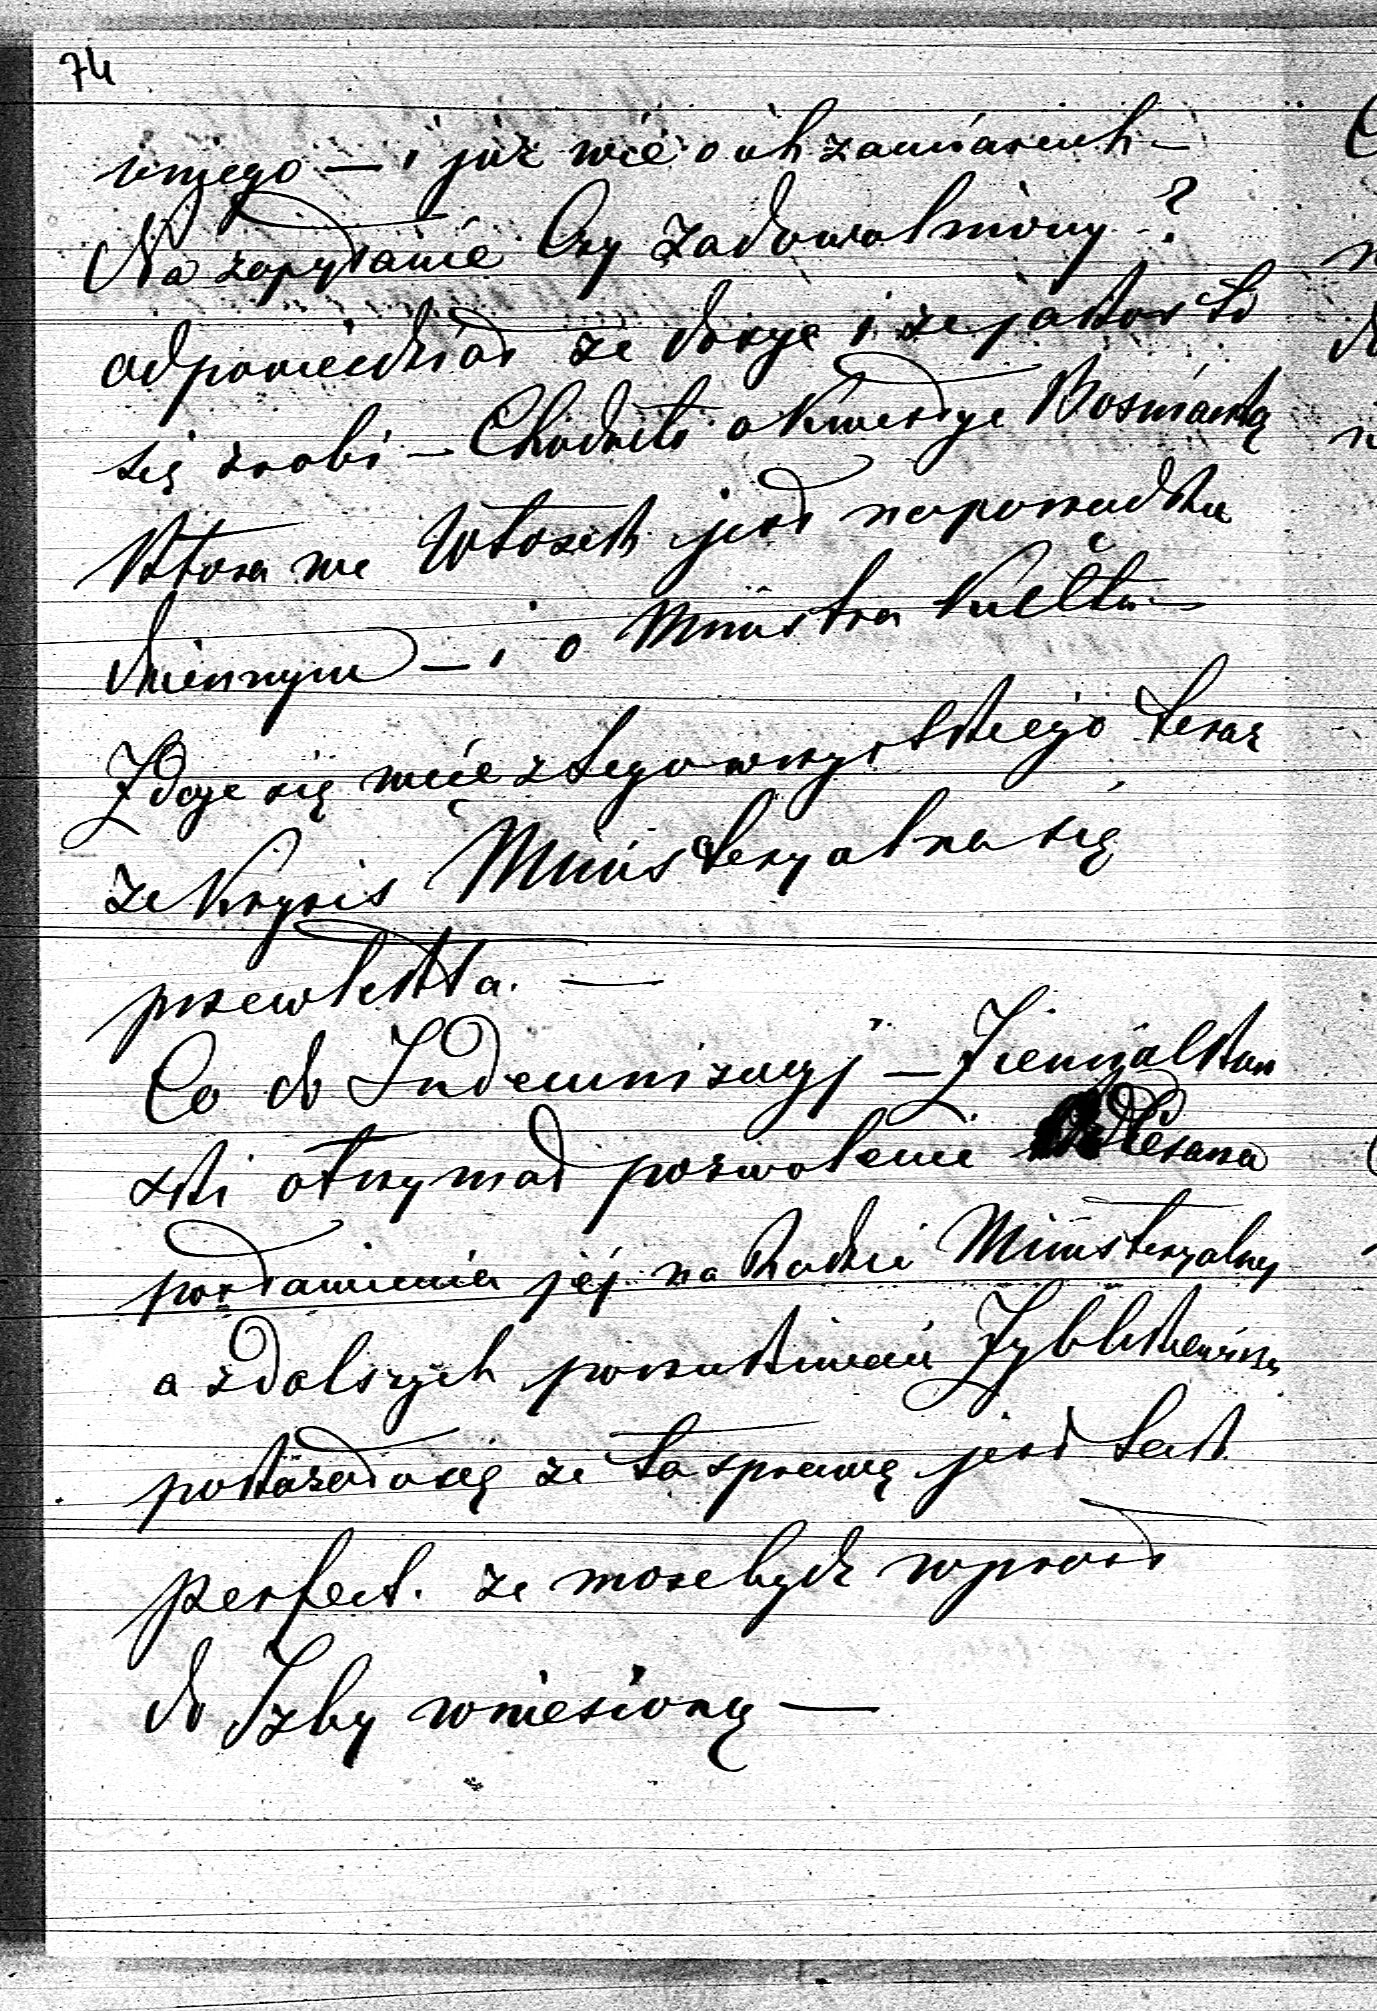 74
innego — i już wié o ich zamiarach —
Na zapytanie Czy zadowolniony?
odpowiedział ze dosyć i ze jakoś to
się zrobi — Chodziło o Kwestye Bosniacką
Ktora we Włoszech jest na porządku
dziennym — i o Ministra Kultu —
Zdaje się wiec z tego wszystkiego teraz
ze Krysis Ministeryalna się
przewlekła. —
Co do Indemnizacyj — Ziemiałkow
ski otrzymał pozwolenie Cesarza
postawienia jéj na Radzie Ministeryalnej
a z dalszych poszukiwań Zyblikiewicza
pokazało się ze ta sprawa jest tak
perfect. ze moze bydz wprost
do Izby wniesioną —